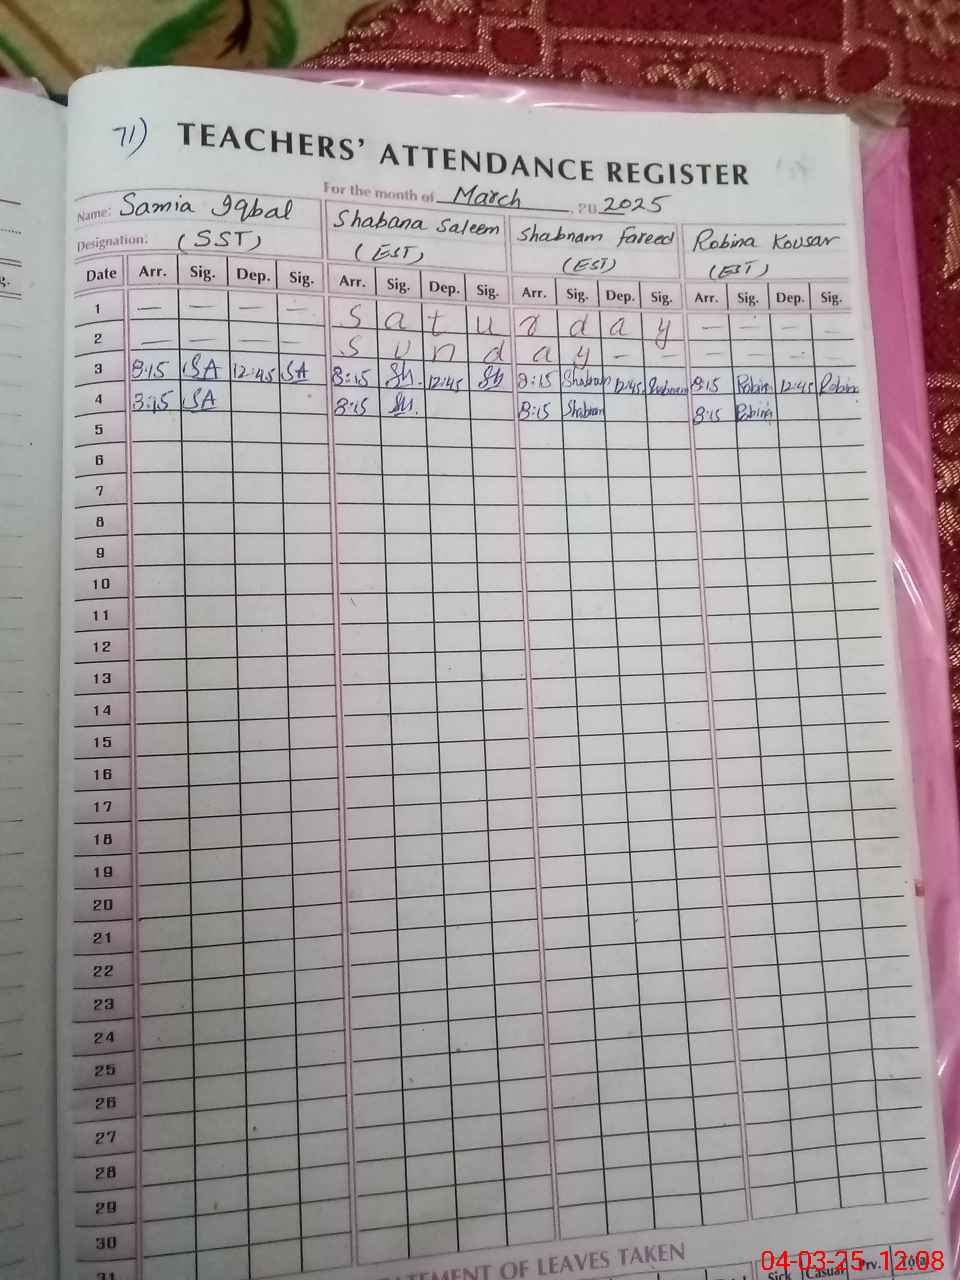 71) TEACHERS' ATTENDANCE REGISTER
For the month of March, 20 2025
Name: Samia Iqbal Shabana Saleem Shabnam Fareed Robina Kousar
Designation: (SST) (EST) (EST) (EST)
Date Arr. Sig. Dep. Sig. Arr. Sig. Dep. Sig. Arr. Sig. Dep. Sig. Arr. Sig. Dep. Sig.
1 — — — — S a t u r d a y — — — —
2 — — — — S u n d a y — — — — — —
3 8:15 SA 12:45 SA 8:15 Sh 12:45 Sh 8:15 Shabnam 12:45 Shabnam 8:15 Robina 12:45 Robina
4 8:15 SA 8:15 Sh. 8:15 Shabnam 8:15 Robina
5
6
7
8
9
10
11
12
13
14
15
16
17
18
19
20
21
22
23
24
25
26
27
28
29
30
31
STATEMENT OF LEAVES TAKEN
Sick Casual Prv. Total
04-03-25 12:08